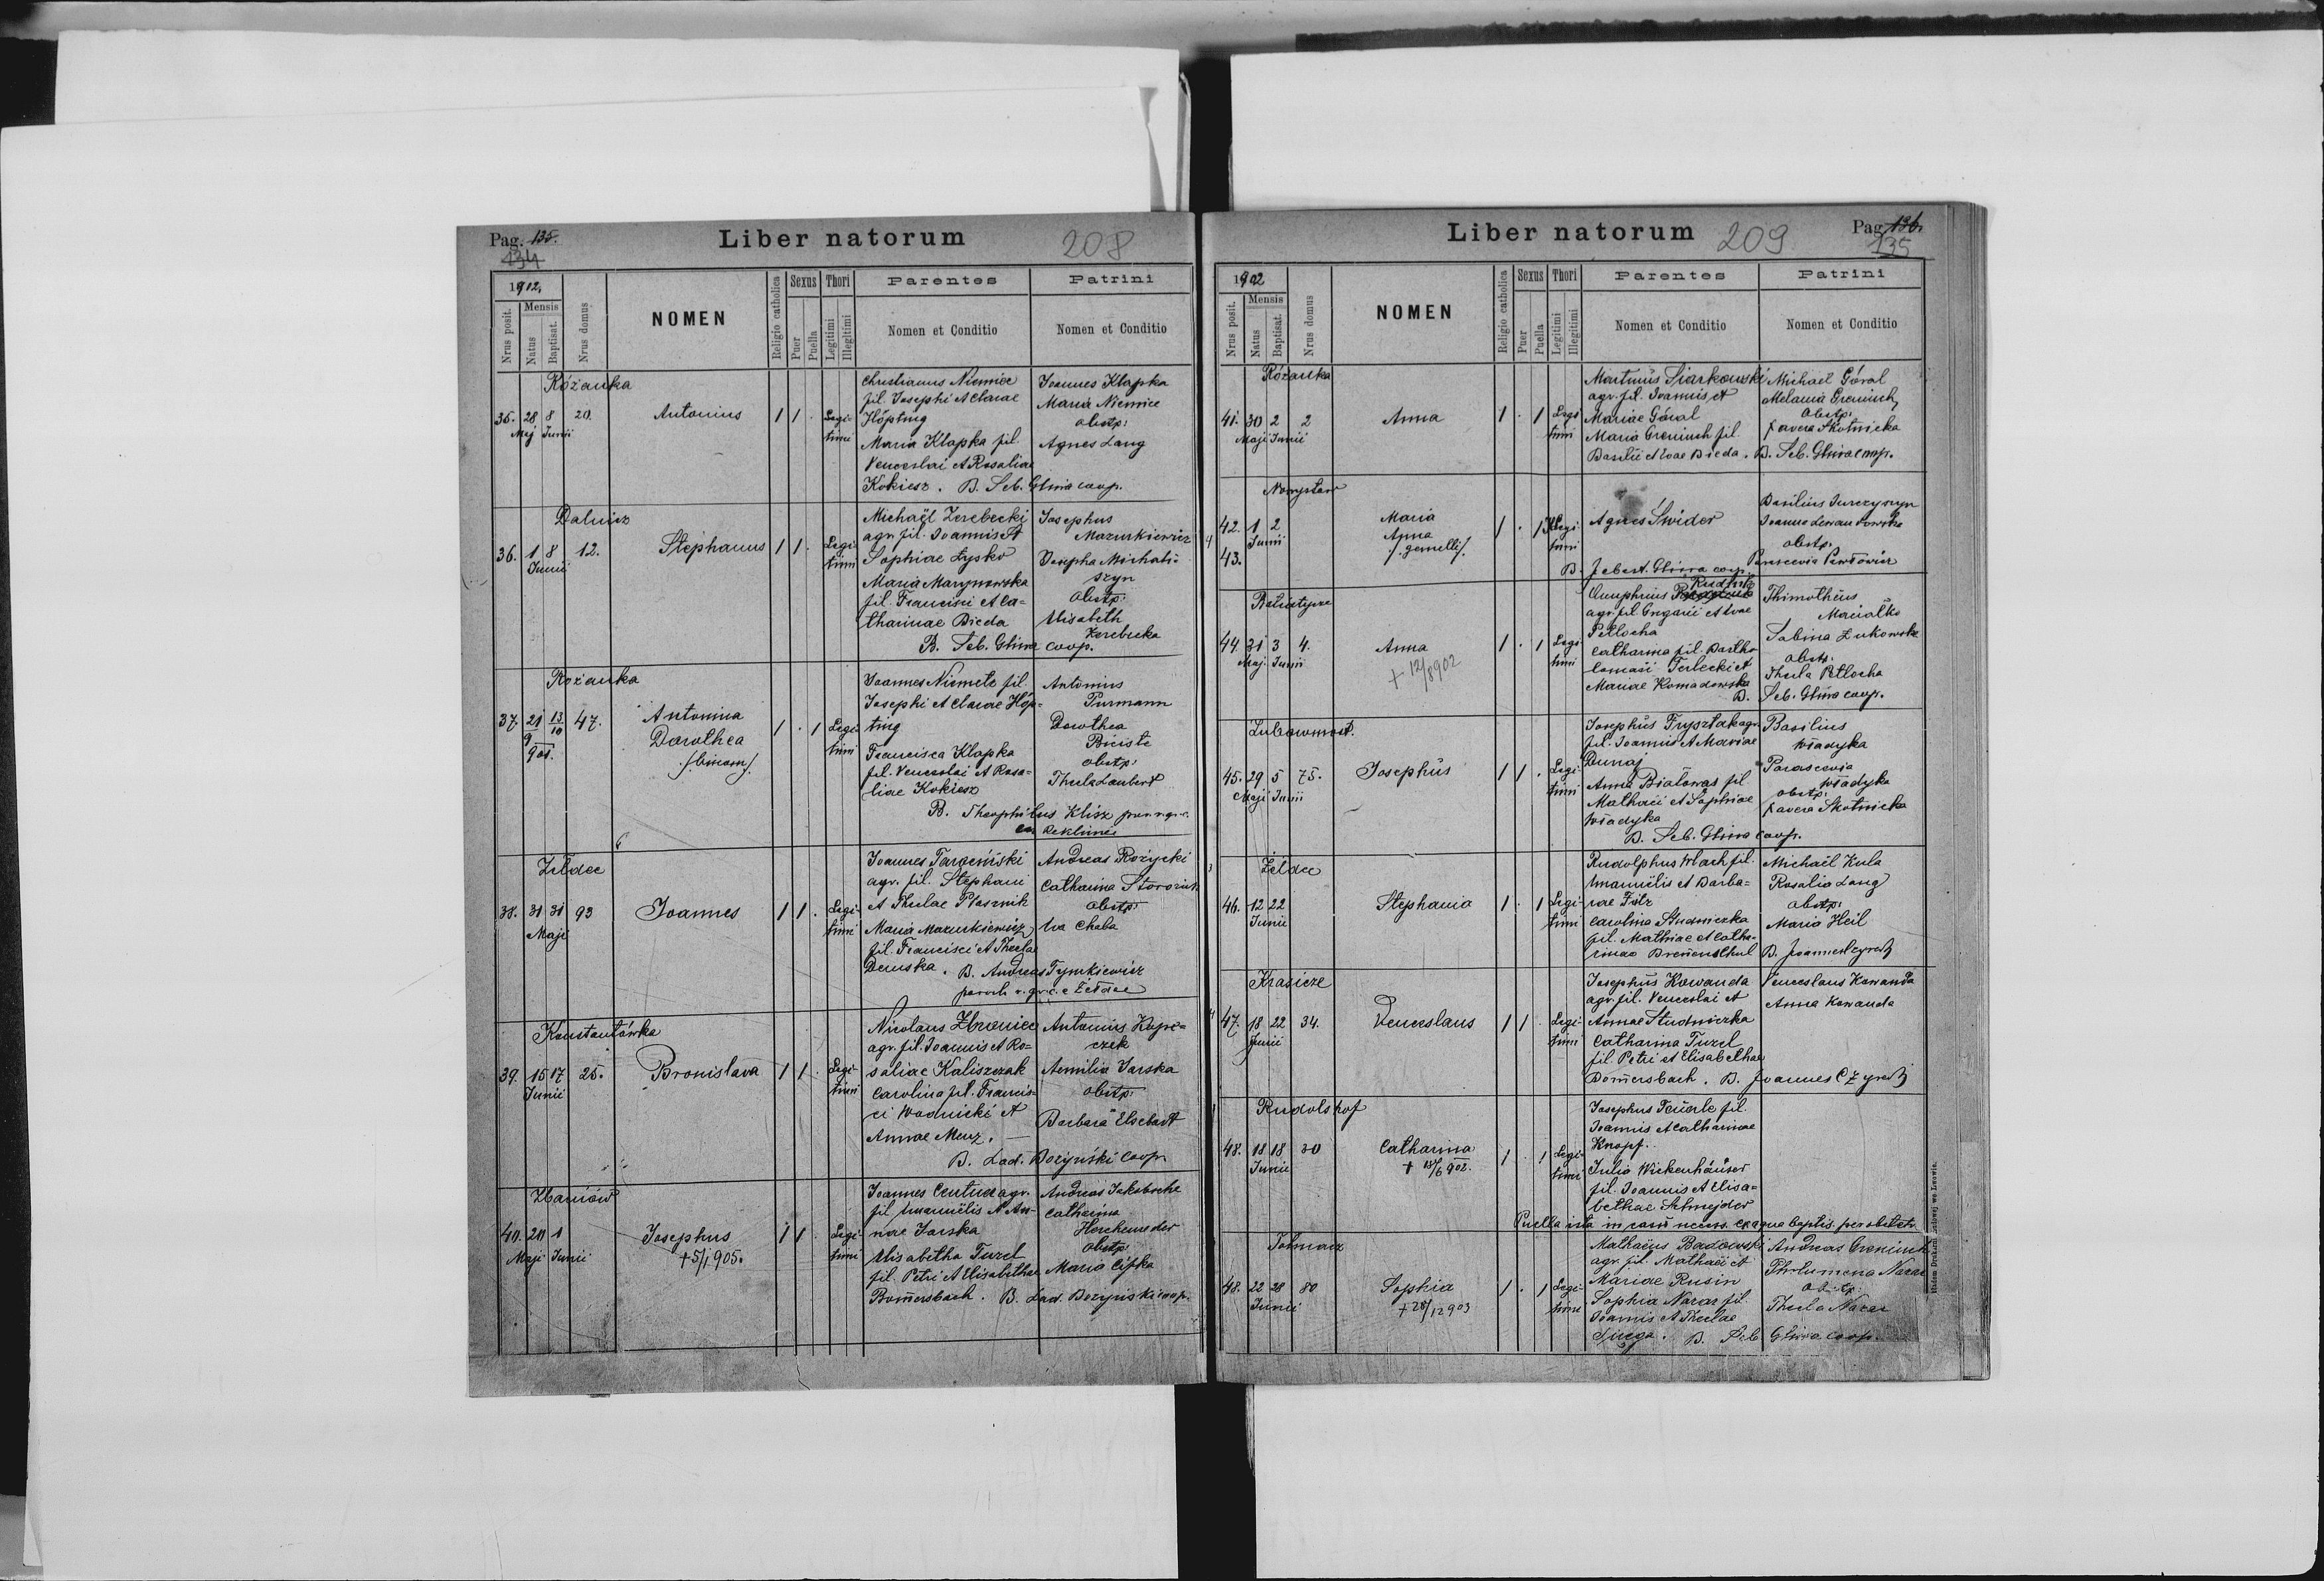 Pag. 135.
134
Liber natorum
208
1902.
Nrus posit.
Mensis
Natus
Baptisat.
Nrus domus
NOMEN
Religio catholica
Sexus
Puer
Puella
Thori
Legitimi
Illegitimi
Parentes
Nomen et Conditio
Patrini
Nomen et Conditio
Różanka
35. 28 8 20. Antonius 1 1 . Legi-
Maj Junii timi
Christianus Niemiec
fil. Josephi et Clarae
Höpting
Maria Klapka fil.
Venceslai et Rosaliae
Kokiesz. B. Seb. Gliwa coop.
Joannes Klapka
Maria Niemiec
obstp:
Agnes Lang
Dalnicz
36. 1 8 12. Stephanus 1 1 . Legi-
Junii timi
Michaël Zerebecki
agr. fil. Joannis et
Sophiae Łysko
Maria Marynowska
fil. Francisci et Ca-
tharinae Bieda
B. Seb. Gliwa coop.
Josephus
Mazurkiewicz
Josepha Michali-
szyn
Obstp:
Elisabeth
Zerebecka
Różanka
37. 21 13/10 47. Antonina 1 . 1 Legi-
9 901. Dorothea timi
Joannes Niemetz fil.
Josephi et Clarae Höp-
ting
Francisca Klapka
fil. Venceslai et Rosa-
liae Kokiesz
B. Theophilus Klisz
Antonius
Purmann
Dorothea
obstp:
Thecla Laubert
Żełdec
38. 31 31 93 Joannes 1 1 . Legi-
Maji timi
Joannes Tarociński
agr. fil. Stephani
et Theclae Ptasznik
Maria Mazurkiewicz
fil. Francisci et Theclae
Demska. B. Andreas Tymkiewicz
paroch r. gr. c. e Żełdec
Andreas Rożycki
Catharina
obstp:
Eva Chaba
Konstantówka
39. 15 17 25. Bronislava 1 1 . Legi-
Junii timi
Nicolaus Zbroniec
agr. fil. Joannis et Ro-
saliae Kaliszczak
Carolina fil. Francis-
ci Wodnicki et
Annae Menz. —
B. Lad. Bożyński Coop.
Antonius Kupe-
czek
Aemilia Jarska
obstp:
Barbara Elsebart
40. 24 1 Josephus 1 1 . Legi-
Maji Junii +5/1 905. timi
Joannes Centner agr.
fil. Emanuëlis et An-
nae Jarska
Elisabetha Turel
fil. Petri et Elisabethae
Bom̄ersbach. B. Lad. Bożyński coop.
Andreas Jakobsche
Catharina
obstp:
Maria Cipka
Liber natorum
209
Pag. 136.
135
1902
Nrus posit.
Mensis
Natus
Baptisat.
Nrus domus
NOMEN
Religio catholica
Sexus
Puer
Puella
Thori
Legitimi
Illegitimi
Parentes
Nomen et Conditio
Patrini
Nomen et Conditio
Różanka
41. 30 2 2 Anna 1 . 1 Legi
Maji Junii timi
Martinus Siarkowski
agr. fil. Joannis et
Mariae Góral
Maria Greniuch fil.
Basilii et Evae Bieda. B. Seb. Gliwa coop.
Michaël Góral
Melania Greniuch
obstp:
Xavera Skotnicka
Nowystaw
42. 1 2 Maria 1 . 1 Illegi-
Junii Anna timi
43. /gemelli/.
Agnes Świder
B. Sebast. Gliwa coop.
Basilius Jurczyszyn
Joanna Lewandowska
obstp.
Parascevia Pawłowicz
Batiatycze
44. 31 3 4. Anna 1 . 1 Legi
Maj. Junii + 12/8 902 timi
Onuphrius Rudnik
agr. fil. Gregorii et Evae
Petlocha
Catharina fil. Bartho-
lomaei Terlecki et
Mariae Komadowska
B. Seb. Gliwa coop.
Thimotheus
Maciałko
Sabina Żukowska
obstp.
Thecla Petlocha
45. 29 5 75. Josephus 1 1 . Legi-
Maji Junii timi
Josephus Frysztak agr.
fil. Joannis et Mariae
Dunaj
Anna Białowąs fil.
Mathaei et Sophiae
Władyka
B. Seb. Gliwa coop.
Basilius
Władyka
Parascevia
Władyka
obstp:
Xavera Skotnicka
Żełdec
46. 12 22 Stephania 1 . 1 Legi-
Junii timi
Rudolphus Wlach fil.
Emanuëlis et Barba-
rae Filz
Carolina Studniczka
fil. Mathiae et Catha-
rinae Bremensthul
Michaël Kula
Rosalia Lang
obstp:
Maria Heil
B. Joannes Czyrek
Krasicze
47. 18 22 34. Venceslaus 1 1 . Legi-
Junii timi
Josephus Kowanda
agr. fil. Venceslai et
Annae Studniczka
Catharina Turel
fil. Petri et Elisabethae
Bom̄ersbach. B. Joannes Czyrek
Venceslaus Kowanda
Anna Kowanda
Rudolshof
48. 18 18 30 Catharina 1 . 1 Legi-
Junii + 18/6 902. timi
Josephus Feuerle fil.
Joannis et Catharinae
Knopf.
Julia Wickenhäuser
fil. Joannis et Elisa-
bethae Schnejder
Puella ista in casu necess. ex aqua baptis. per obstetr.
48. 22 28 80 Sophia 1 . 1 Legi-
Junii + 28/12 903 timi
Mathaeus Badowski
agr. fil. Mathaei et
Mariae Rusin
Sophia Nazar fil.
Joannis et Theclae
B. Seb. Gliwa coop.
Andreas Greniuch
Philumena Nazar
obstp:
Thecla Nazar